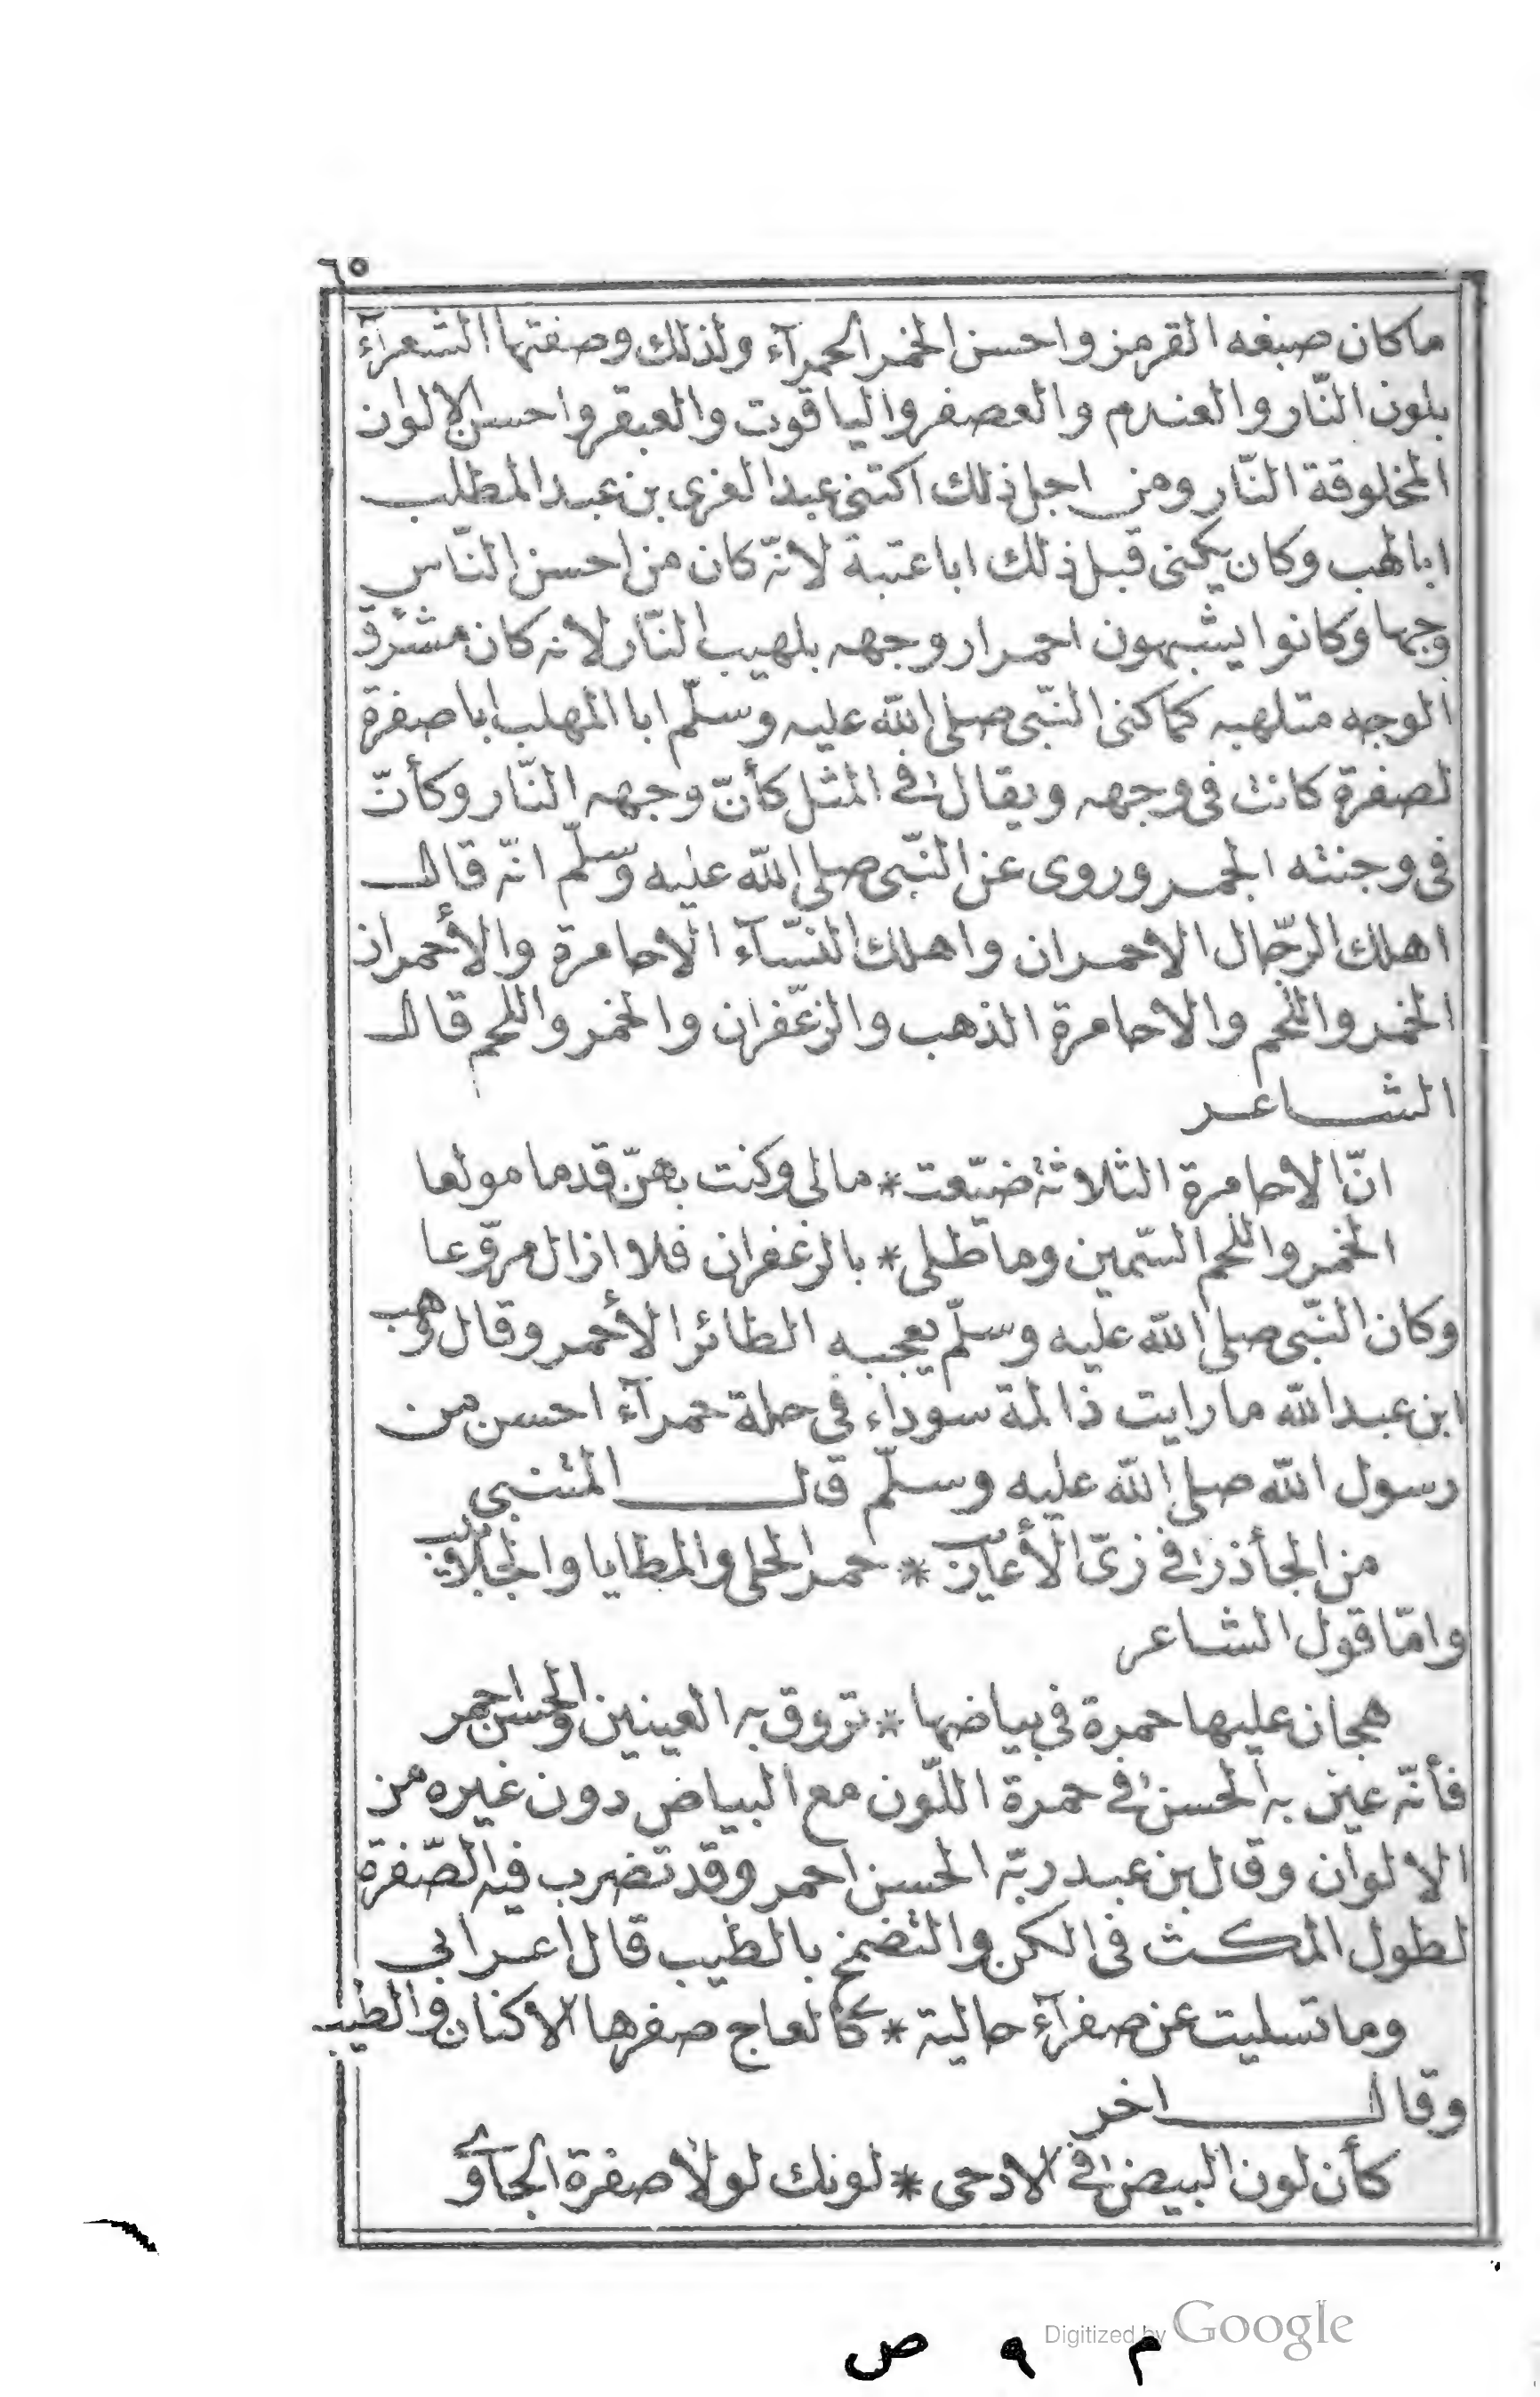 ٦٥
ماكان صبغه القرمز واحسن الخمر الحمرآء ولذلك وصفتها الشعرآء
بلون النّار والعندم والعصفر والياقوت والعبقر واحسن الالوان
المخلوقة النّار ومن اجل ذلك اكتنى عبد العزى بن عبد المطلب
ابالهب وكان يكنى قبل ذلك اباعتبة لانّه كان من احسن النّاس
وجها وكانوا يشبهون احمرار وجهه بلهيب النّار لانه كان مشرق
الوجه متلهبه كما كنى النّبى صلى الله عليه وسلّم ابا المهلب اباصفرة
لصفرة كانت فى وجهه ويقال فى المثل كأنّ وجهه النّار وكأنّ
فى وجنته الجمر وروى عن النّبى صلى الله عليه وسلّم انّه قال
اهلك الرّجال الاحمران واهلك النسّآء الاحامرة والأحمران
الخمر واللحم والاحامرة الذهب والزعّفران والخمر واللحم قال
الشاعر
انّ الاحامرة الثلاثة ضيّعت * مالى وكنت بهنّ قدما مولعا
الخمر واللحم السّمين وماطلى * بالزعفران فلا ازال مروّعا
وكان النّبى صلى الله عليه وسلّم يعجبه الطائر الأحمر وقال وهب
ابن عبد الله ما رايت ذا لمة سوداء فى حلة حمرآء احسن من
رسول الله صلى الله عليه وسلّم قال المتنبى
من الجأذر فى زىّ الأعاريب * حمر الحلى والمطايا والجلابيب
وامّا قول الشاعر
هجان عليها حمرة فى بياضها * تروق به العينين والحسن احمر
فأنّه عين به الحسن فى حمرة اللّون مع البياض دون غيره من
الالوان وقال بن عبد ربّه الحسن احمر وقد تضرب فيه الصّفرة
لطول المكث فى الكن والتضمخ بالطيب قال اعرابى
وما تسليت عن صفرآء حالية * كالعاج صفرها الاكنان والطيب
وقال اخر
كأن لون البيض فى الادحى * لونك لولا صفرة الجآوى
م ٩ ص
Digitized by Google